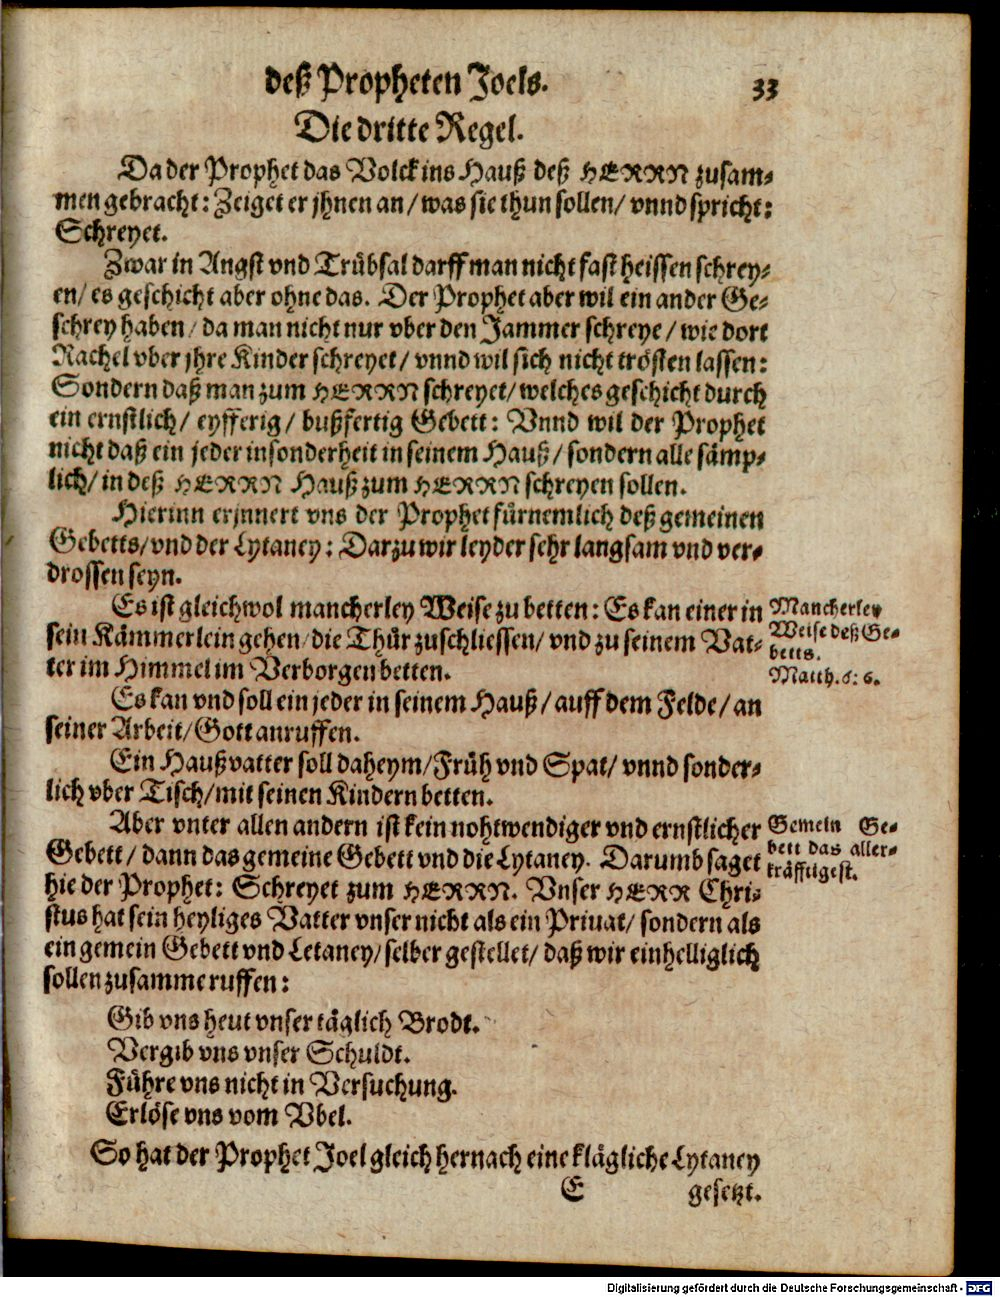 deß Propheten Joels. 33
Die dritte Regel.
Da der Prophet das Volck ins Hauß deß HERRN zusam-
men gebracht: Zeiget er jhnen an / was sie thun sollen / vnnd spricht:
Schreyet.
Zwar in Angst vnd Trübsal darff man nicht fast heissen schrey-
en / es geschicht aber ohne das. Der Prophet aber wil ein ander Ge-
schrey haben / da man nicht nur vber den Jammer schreye / wie dort
Rachel vber jhre Kinder schreyet / vnnd wil sich nicht trösten lassen:
Sondern daß man zum HERRN schreyet / welches geschicht durch
ein ernstlich / eyfferig / bußfertig Gebett: Vnnd wil der Prophet
nicht daß ein jeder insonderheit in seinem Hauß / sondern alle sämp-
lich / in deß HERRN Hauß zum HERRN schreyen sollen.
Hierinn erjnnert vns der Prophet fürnemlich deß gemeinen
Gebetts / vnd der Lytaney: Darzu wir leyder sehr langsam vnd ver-
drossen seyn.
Es ist gleichwol mancherley Weise zu betten: Es kan einer in
sein Kämmerlein gehen / die Thür zuschliessen / vnd zu seinem Vat-
ter im Himmel im Verborgen betten.
Mancherley
Weise deß Ge-
betts.
Matth. 6: 6.
Es kan vnd soll ein jeder in seinem Hauß / auff dem Felde / an
seiner Arbeit / Gott anruffen.
Ein Haußvatter soll daheym / Früh vnd Spat / vnnd sonder-
lich vber Tisch / mit seinen Kindern betten.
Aber vnter allen andern ist kein nohtwendiger vnd ernstlicher
Gebett / dann das gemeine Gebett vnd die Lytaney. Darumb saget
hie der Prophet: Schreyet zum HERRN. Vnser HERR Chri-
stus hat sein heyliges Vatter vnser nicht als ein Priuat / sondern als
ein gemein Gebett vnd Letaney / selber gestellet / daß wir einhelliglich
sollen zusamme ruffen:
Gemein Ge-
bett das aller-
kräfftigest.
Gib vns heut vnser täglich Brodt.
Vergib vns vnser Schuldt.
Führe vns nicht in Versuchung.
Erlöse vns vom Vbel.
So hat der Prophet Joel gleich hernach eine klägliche Lytaney
E gesetzt.
Digitalisierung gefördert durch die Deutsche Forschungsgemeinschaft - DFG